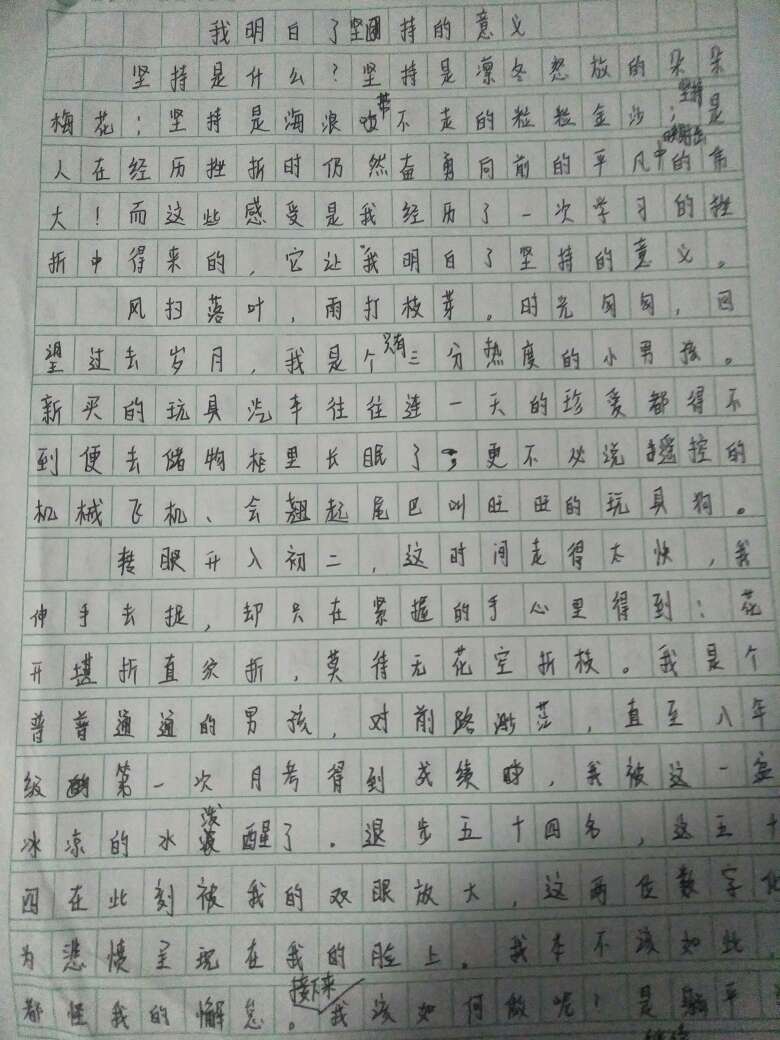 我明白了坚持的意义
坚持是什么？坚持是凛冬怒放的朵朵
梅花；坚持是海浪吹带不走的粒粒金沙；坚持是
人在经历挫折时仍然奋勇向前的平凡中的伟
大！而这些感受是我经历了一次学习的挫
折中得来的，它让我明白了坚持的意义。
风扫落叶，雨打枝芽。时光匆匆，回
望过去岁月，我是个只有三分热度的小男孩。
新买的玩具汽车往往连一天的珍爱都得不
到便去储物柜里长眠了，更不必说遥控的
机械飞机、会翘起尾巴叫旺旺的玩具狗。
转眼升入初二，这时间走得太快，我
伸手去捉，却只在紧握的手心里得到：花
开堪折直须折，莫待无花空折枝。我是个
普普通通的男孩，对前路渺茫，直至八年
级第一次月考得到成绩时，我被这一盆
冰凉的水泼醒了。退步五十四名，这五十
四在此刻被我的双眼放大，这两位数字化
为悲愤呈现在我的脸上。我本不该如此，
都怪我的懈怠。接下来我该如何做呢！是躺平